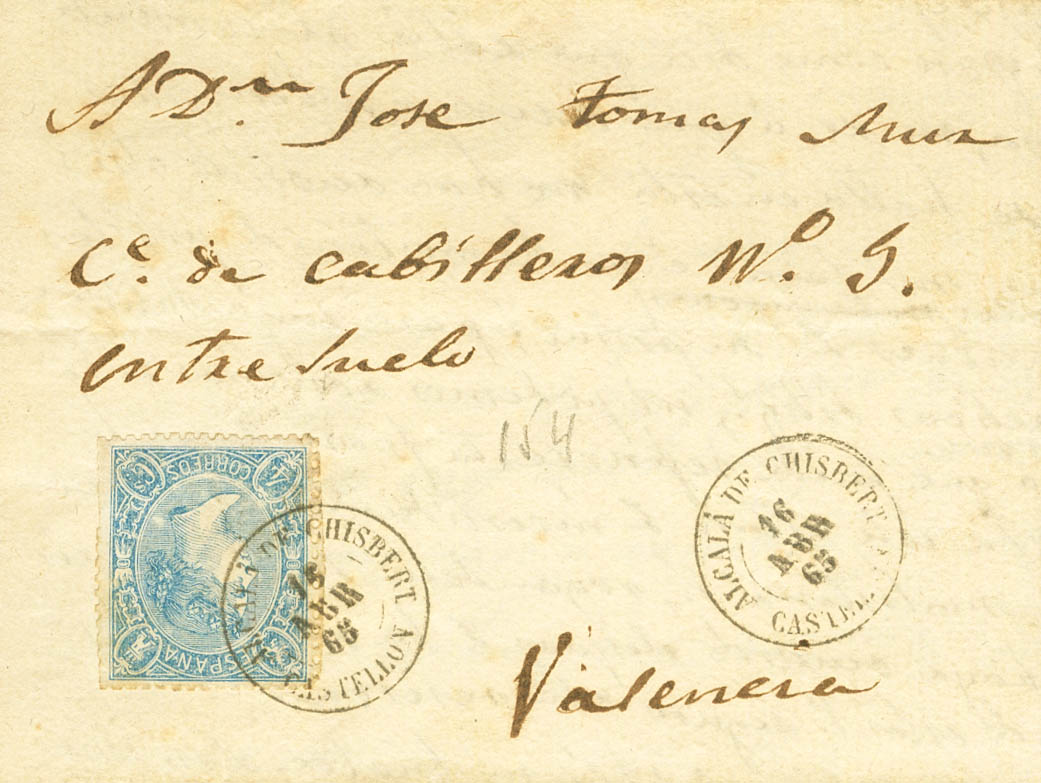 A Dn. Jose tomas Mur
Ce. de cabilleros No. 9.
entre suelo
154
CORREOS
4 Cs
ESPAÑA
ALCALÁ DE CHISBERT
16
ABR
65
CASTELLON
ALCALÁ DE CHISBERT
16
ABR
65
CASTEL
Valencia